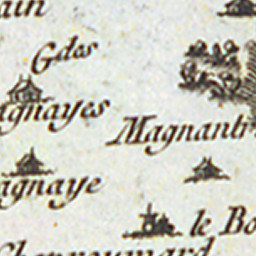 ain
Gdes
agnayes
Magnant
agnaye
le Bo
Chennoumard